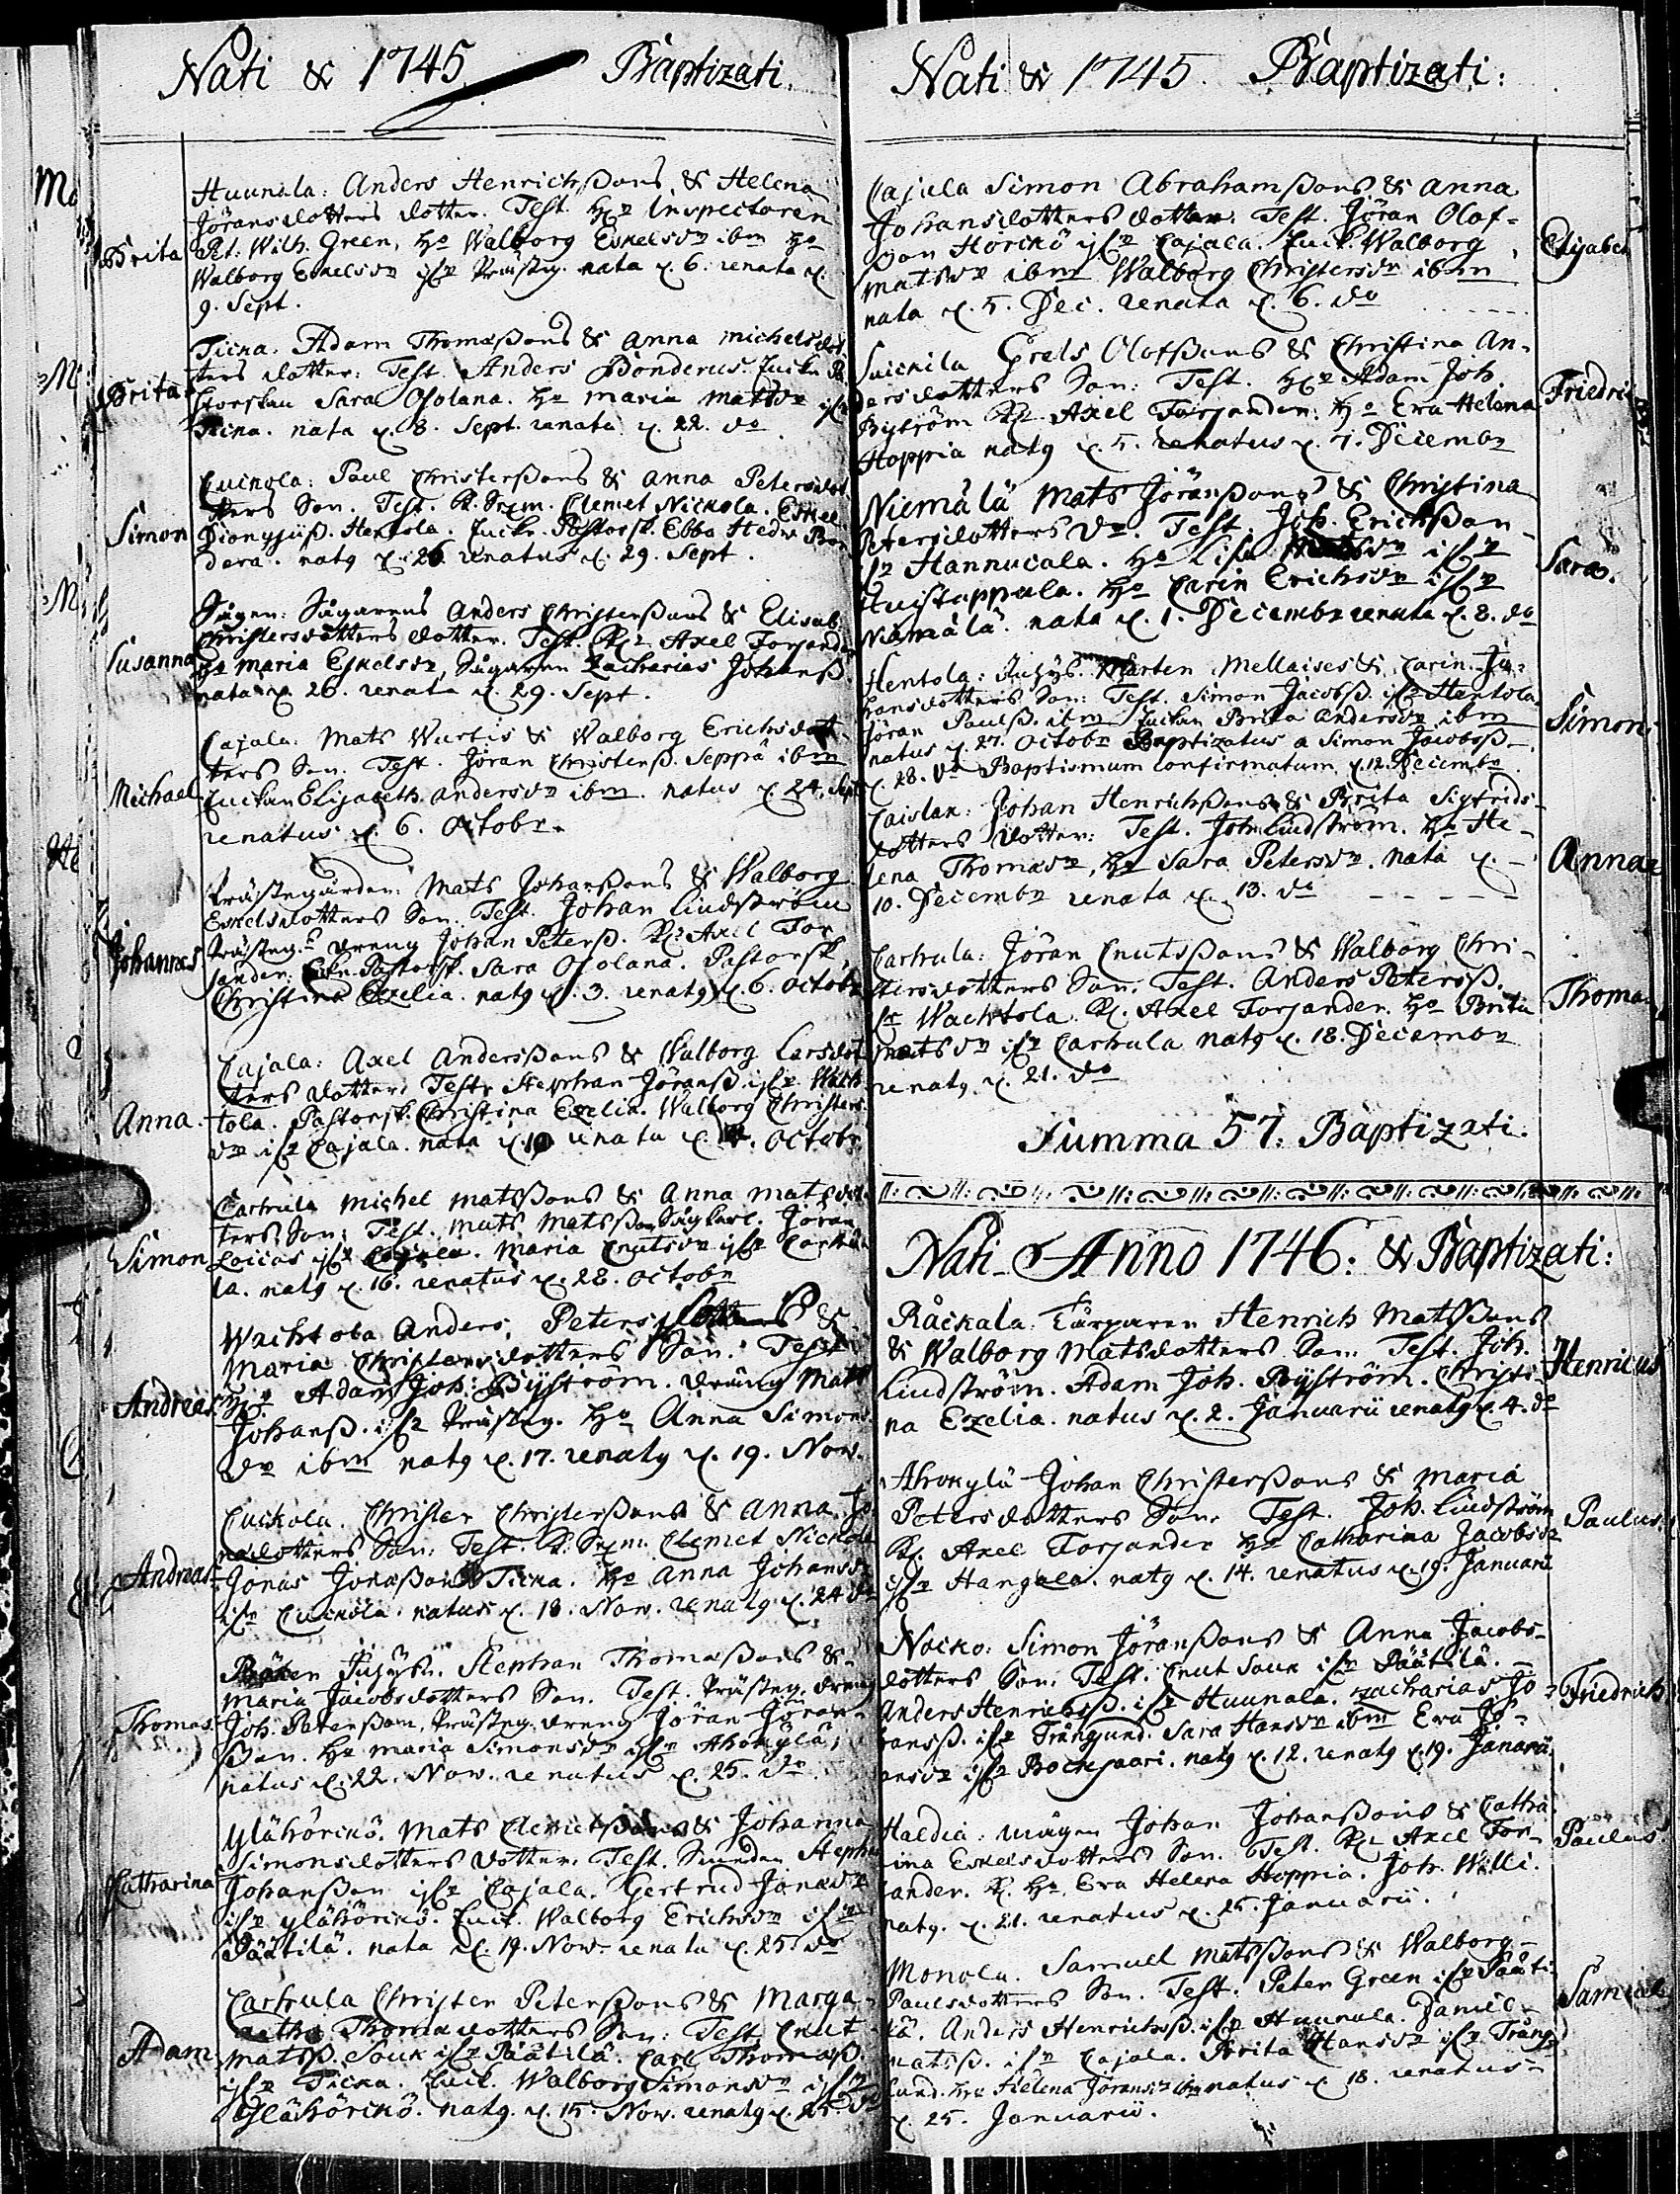 Nati & 1745 Baptizati.
Brita
Huunala: Anders Henrichßons & Helena
Jöransdotters dotter. Test. Hr Inspectoren
Pet. Wilh. Green, Ho Walborg Eskelsdr ibm Ho
Walborg Eskelsdr ifr Prästeg. nata d. 6. renata d.
9. Sept.
Brita
Ticka. Adam Thomaßons & Anna Michelsdot
ters dotter: Test. Anders Bonderus.
Sara Osolana. Ho Maria Matsdr ifr
Ticka. nata d. 8. Sept. renata d. 22. do
Simon
Cuickola: Paul Christerßons & Anna Petersdot
ters Son. Test. Clemet Nickola. Eskel
Dionysiiß. Hentola. Pastorsk. Ebba Hedw. Bon
dera. natg d. 26 renatus d. 29. Sept.
Susanna
Sågen: Sågarens Anders Christerßons & Elisab.
Christersdotters dotter. Test. Axel Forsander
Ho Maria Eskelsdr, Sågaren Zacharias Johanß
nata d. 26. renata d. 29. Sept.
Michael
Cajala: Mats Wurtis & Walborg Erichsdot
ters Son. Test. Jöran Christerß. Seppä ibm
Elisabeth Andersdr ibm. natus d. 24. Sept
renatus d. 6. Octobr.
Johannes
Prästegården: Mats Johanßons & Walborg
Eskelsdotters Son. Test. Johan Lindström
Prästeg. dreng Johan Peterß. Axel For
sander. Pastorsk. Sara Osolana. Pastorsk,
Christina Ezelia. natg d. 3. renatg d. 6. Octobr
Anna
Cajala: Axel Anderßons & Walborg Larsdot
ters dotter. Test. Stephan Jöranß. ifr Wach
tola. Pastorsk. Christina Ezelia. Walborg Christers
dr ifr Cajala. nata d. 10 renata d. Octobr.
Simon
Carhula Michel Matsßons & Anna Matsdot
ters Son: Test. Mats Matsßon Jöran
Loccas ifr Cajala. Maria Cnutsdr ifr Carhu
la. natg d. 16. renatus d. 28. Octobr
Andreas
Wachtola Anders Peters &
Maria Christersdotters Son. Test
Hr Adam Joh. Byström. dräng Mats
Johanß. ifr Prästeg. Ho Anna Simons
dr ibm natg d. 17. renatg d. 19. Nov.
Andreas
Cuickola. Christer Christerßons & Anna Jo
nædotters Son: Test. Clemet Nickola
Jonas Jonæßon Ticka. Ho Anna Johansdr
ifr Cuickola. natus d. 18. Nov. renatg d. 24 do
Thomas
Stephan Thomaßons &
Maria Jacobsdotters Son. Test. Prästeg. dreng
Joh. Peterßon, Prästeg. dreng Jöran Jöran-
ßon. Ho Maria Simonsdr ifr Ahokylä,
natus d. 22. Nov. renatus d. 25. do
Catharina
Ylähörckö. Mats & Johanna
Simonsdotters dotter. Test. Stephan
Johanßon ifr Cajala. Gertrud Jonædr
ifr Ylähörckö. Walborg Erichsdr ifr
Päätilä. nata d. 19. Nov. renata d. 25. do
Adam
Carhula Christer Peterßons & Marga-
retha Thomædotters Son: Test. Cnut
Matsß. Souk ifr Päätilä. Carl Thomaß.
ifr Ticka. Walborg Simonsdr ifr
Ylähörckö. natg. d. 15. Nov. renatg d. 25. do
Nati & 1745. Baptizati:
Elisabeth
Cajala Simon Abrahamßons & Anna
Johansdotters dotter. Test. Jöran Olof-
ßon Hörckö ifr Cajala. Walborg
Matsdr ibm Walborg Christersdr ibm
nata d. 5. Dec. renata d. 6. do
Friedric
Suickila Grels Olofßons & Christina An-
dersdotters Son: Test. Hr Adam Joh.
Byström Axel Forsander. Ho Eva Helena
Hoppia natg d. 5. renatus d. 7. Decembr
Sara.
Niemälä Mats Jöranßons & Christina
Petersdotters dr. Test. Joh. Erichßon
ifr Hannucala. Ho Lisa Matsdr ifr
Huistappala. Ho Carin Erichsdr ifr
Niemälä. nata d. 1. Decembr renata d. 8. do
Simon
Hentola: Mårten Mellaises & Carin Jo-
hansdotters Son: Test. Simon Jacobß. ifr Hentola
Jöran Paulß. ibm Brita Andersdr ibm
natus d. 27. Octobr Baptizatus a Simon Jacobsß
d. 28. do Baptismum confirmatum d. 12. Decembr.
Anna
Caislax: Johan Henrichßons & Brita Sigfrids-
dotters dotter: Test. Joh. Lindström. Ho He-
lena Thomædr, Ho Sara Petersdr. nata d. -
10. Decembr renata d. 13. do
Thomas
Carhula: Jöran Cnutsßons & Walborg Chri-
stersdotters Son. Test. Anders Petersß.
ifr Wachtola. Axel Forsander. Ho Brita
Matsdr ifr Carhula natg d. 18. Decembr
renatg. d. 21. do
Summa 57. Baptizati.
Nati Anno 1746: & Baptizati:
Henricus
Råckala Torparen Henrich Matsßons
& Walborg Matsdotters Son. Test. Joh.
Lindström. Adam Joh. Byström. Christi-
na Ezelia. natus d. 2. Januarii renatg d. 4. do
Paulus
Ahokylä Johan Christerßons & Maria
Petersdotters Son. Test. Joh. Lindström
Axel Forsander Ho Catharina Jacobsdr
ifr Hangala. natg d. 14. renatus d. 19. Januarii
Friedrich
Nocko: Simon Jöranßons & Anna Jacobs-
dotters Son. Test. Cnut Souk ifr Päätilä.
Anders Henrichsß. ifr Huunala. Zacharias Jo
hansß. ifr Trångsund. Sara Hansdr ibm Eva Jö-
ransdr ifr Bockesaari. natg d. 12. renatg d. 19. Januarii
Paulus
Haldia: Mågen Johan Johanßons & Catha
rina Eskelsdotters Son. Test. Axel For-
sander. Ho Eva Helena Hoppia. Joh. Willi.
natg. d. 21. renatus d. 25. Januarii.
Samuel
Monola. Samuel Matsßons & Walborg
Paulsdotters Son. Test. Peter Green ifr Pääti
lä. Anders Henrichsß. ifr Huunala. Daniel
Matsß. ifr Cajala. Brita Hansdr ifr Trång
sund. Helena Jöransdr ibm natus d. 18. renatus
d. 25. Januarii.